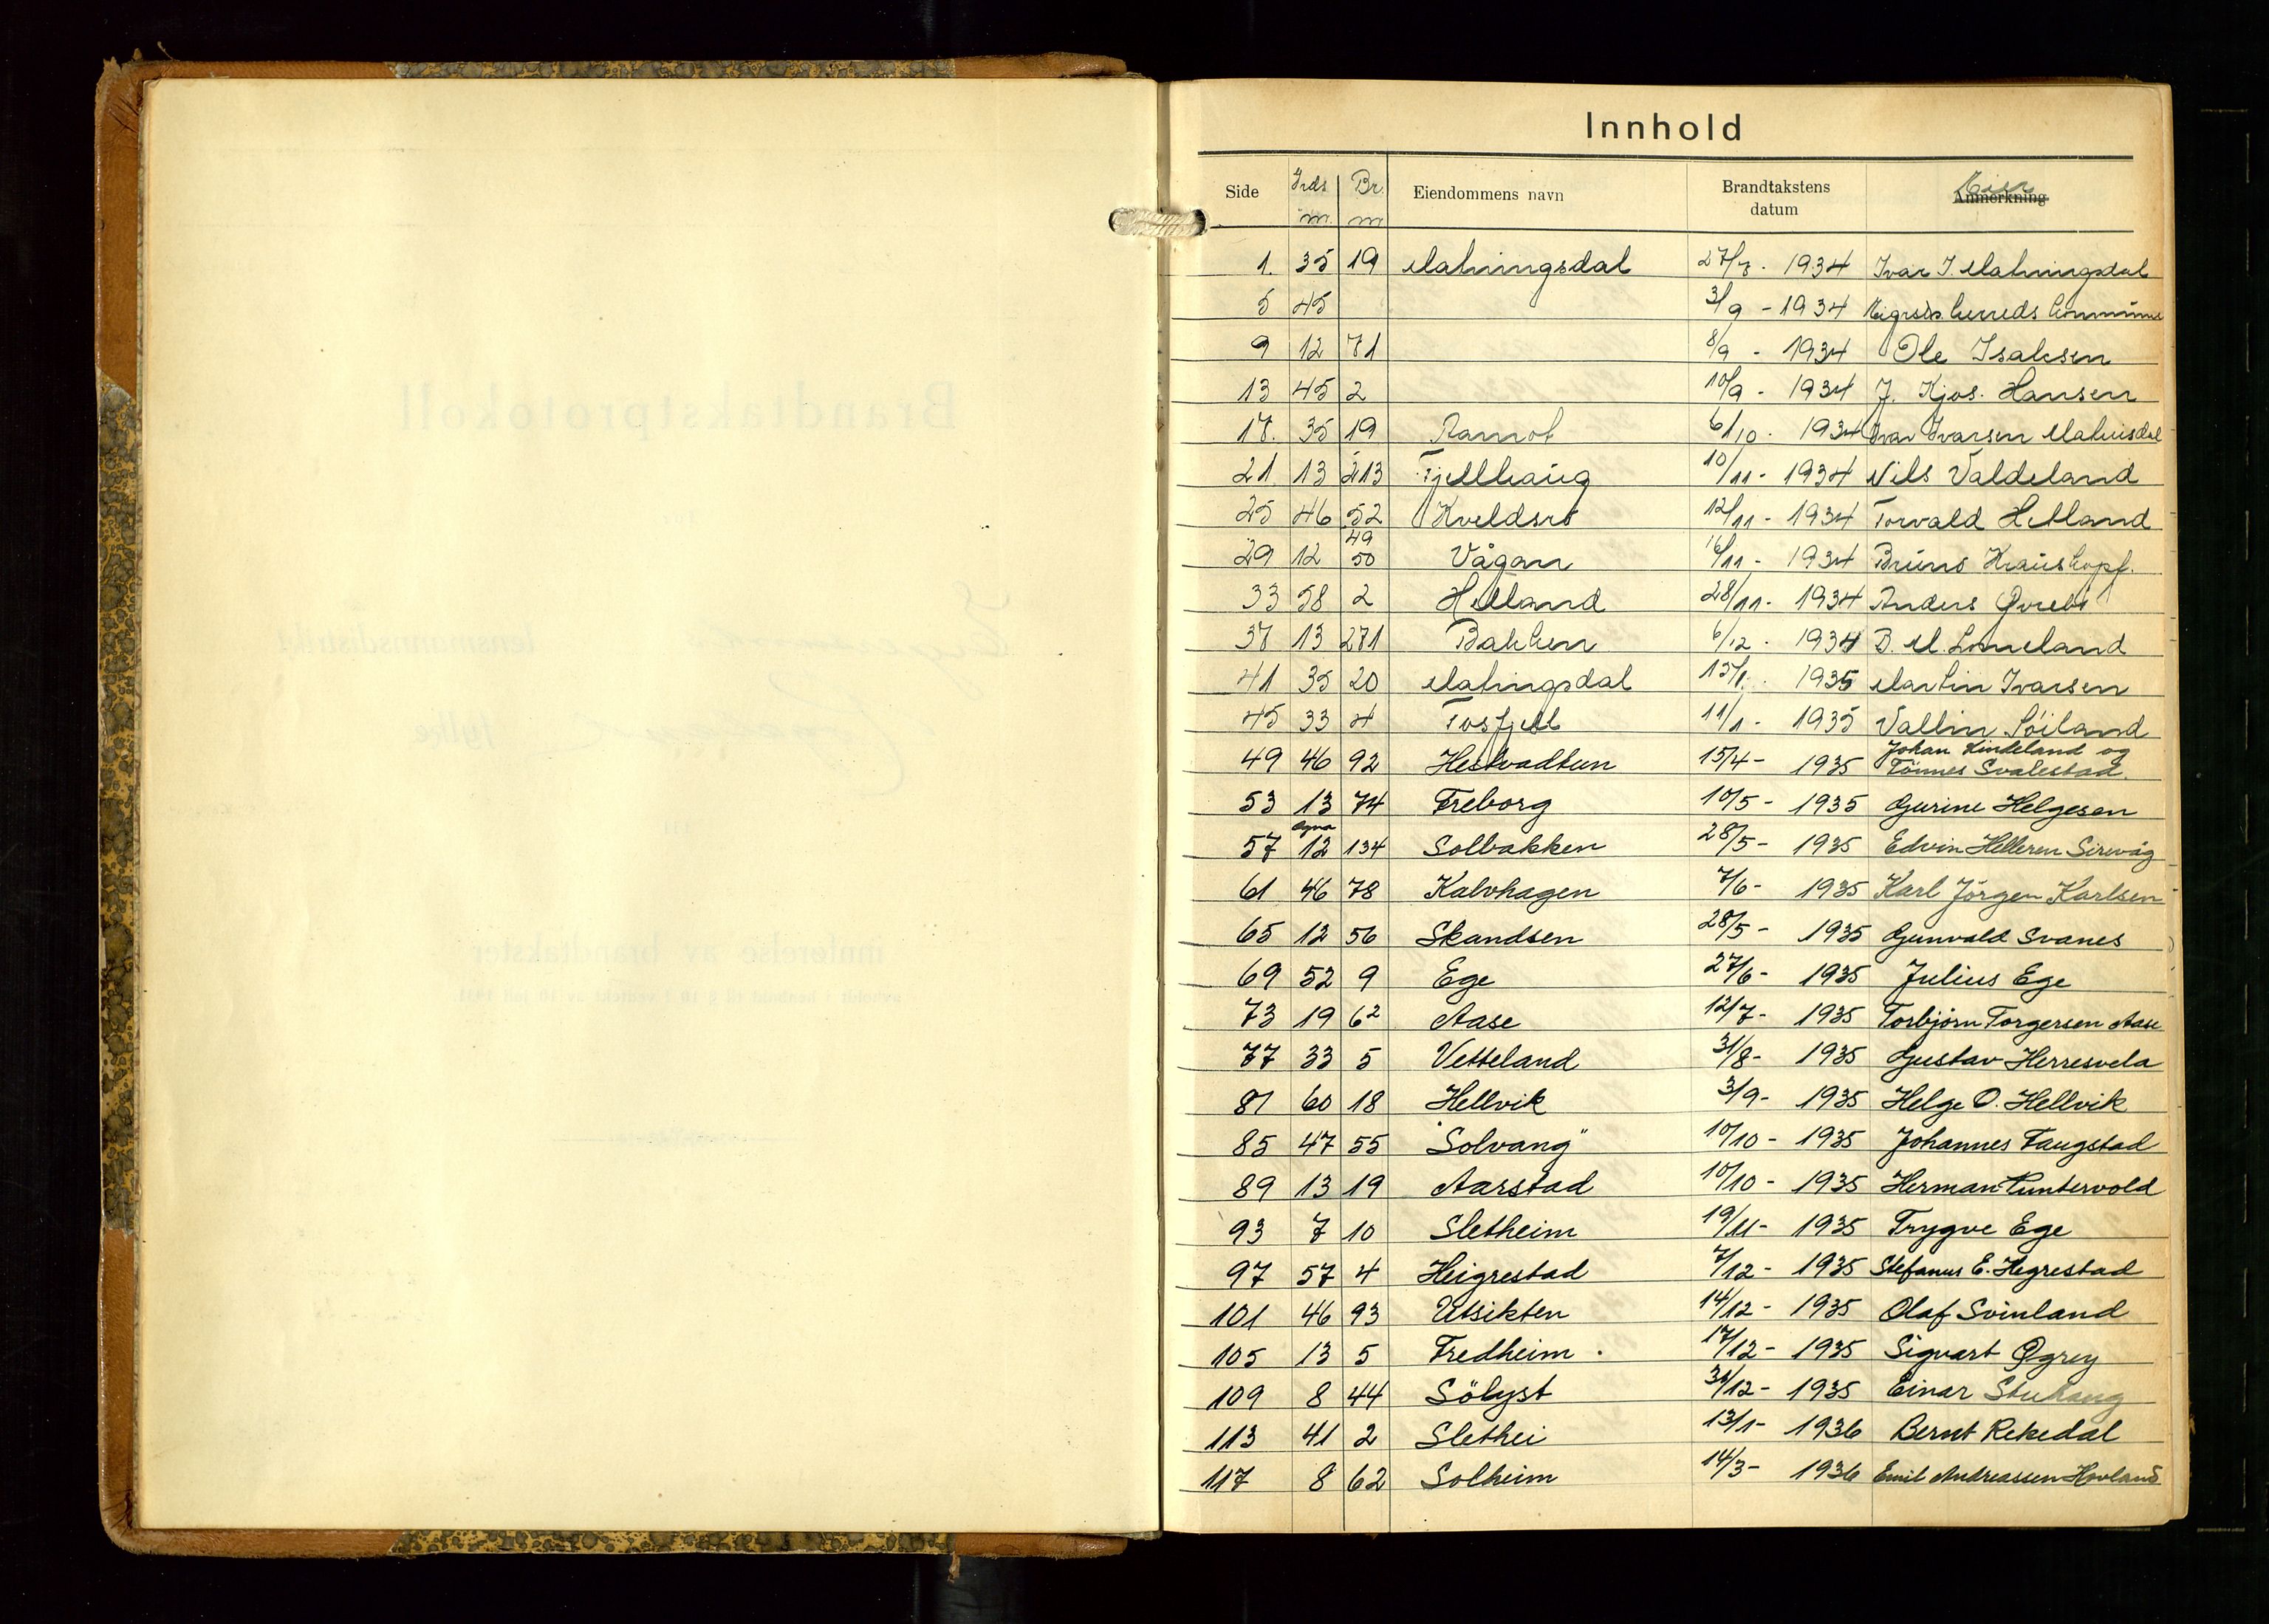 Innhold
Side Grds nr. Br. nr Eiendommens navn Brandtakstens datum Anmerkning Eier
1. 35 19 Malmingsdal 27/7. 1934 Ivar I. Malmingsdal
5 45 3/9 - 1934 Eigersunds herreds kommune
9 12 71 8/9 - 1934 Ole Isaksen
13 45 2 10/9 - 1934 J. Kjos. Hansen
17. 35 19 6/10. 1934 Ivar Ivarsen
21 13 213 Fjellhaug 10/11 - 1934 Nils Valdeland
25 46 52 Kveldsro 12/11 - 1934 Torvald Hetland
29 12 49 50 Vågan 16/11 - 1934 Bruno Krauskopf.
33 58 2 Helland 28/11. 1934 Anders
37 13 271 Bakken 6/12. 1934 B. M. Lomeland
41 35 20 Malmingsdal 1935 Martin Ivarsen
45 33 4 Tosfjell 11/1 - 1935 Vallin Söiland
49 46 92 Hestvadtun 15/4 - 1935 Johan Lindeland og Tönnes Svalestad.
53 13 74 Freborg 10/5 - 1935 Gurine Helgesen
57 Ogna 12 134 Solbakken 28/5 - 1935 Edvin Helleren Sirevåg
61 46 78 Kalvhagen 7/6 - 1935 Karl Jörgen Karlsen
65 12 56 Skandsen 28/5 - 1935 Gunvald Svanes
69 52 9 Ege 27/6 - 1935 Julius Ege
73 19 62 Aase 12/7 - 1935 Torbjörn Torgersen Aase
77 33 5 Vetteland 31/8 - 1935 Gustav Herresvela
81 60 18 Hellvik 3/9 - 1935 Helge O. Hellvik
85 47 55 "Solvang" 10/10 - 1935 Johannes Faugstad
89 13 19 Aarstad 10/10 - 1935 Herman Puntervold
93 7 10 Sletheim 19/11 - 1935 Trygve Ege
97 57 4 Heigrestad 7/12 - 1935 Stefanus E. Hegrestad
101 46 93 Utsikten 14/12 - 1935 Olaf Svinland
105 13 5 Fredheim . 17/12 - 1935 Sigvart Øgrey
109 8 44 Sölyst 1935 Einar Stuhaug
113 41 2 Slethei 13/1 - 1936 Bernt Rekedal
117 8 62 Solheim 14/3 - 1936 Emil Andreassen Hovland